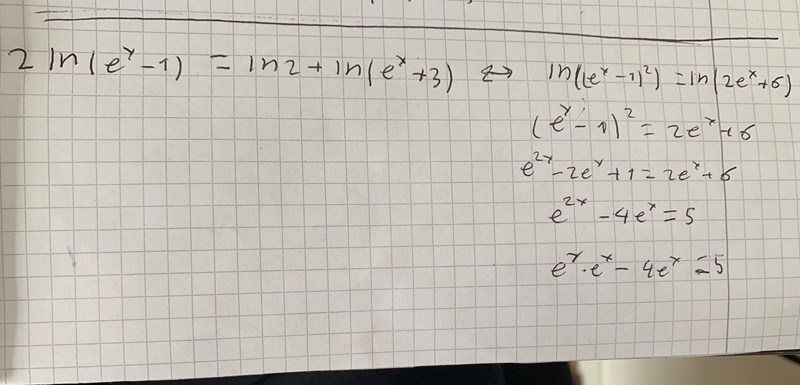 2 ln(eˣ-1) = ln2 + ln(eˣ+3) ⟷ ln((eˣ-1)²) = ln(2eˣ+6)
(eˣ-1)² = 2eˣ+6
e²ˣ-2eˣ+1 = 2eˣ+6
e²ˣ-4eˣ = 5
eˣ·eˣ - 4eˣ = 5